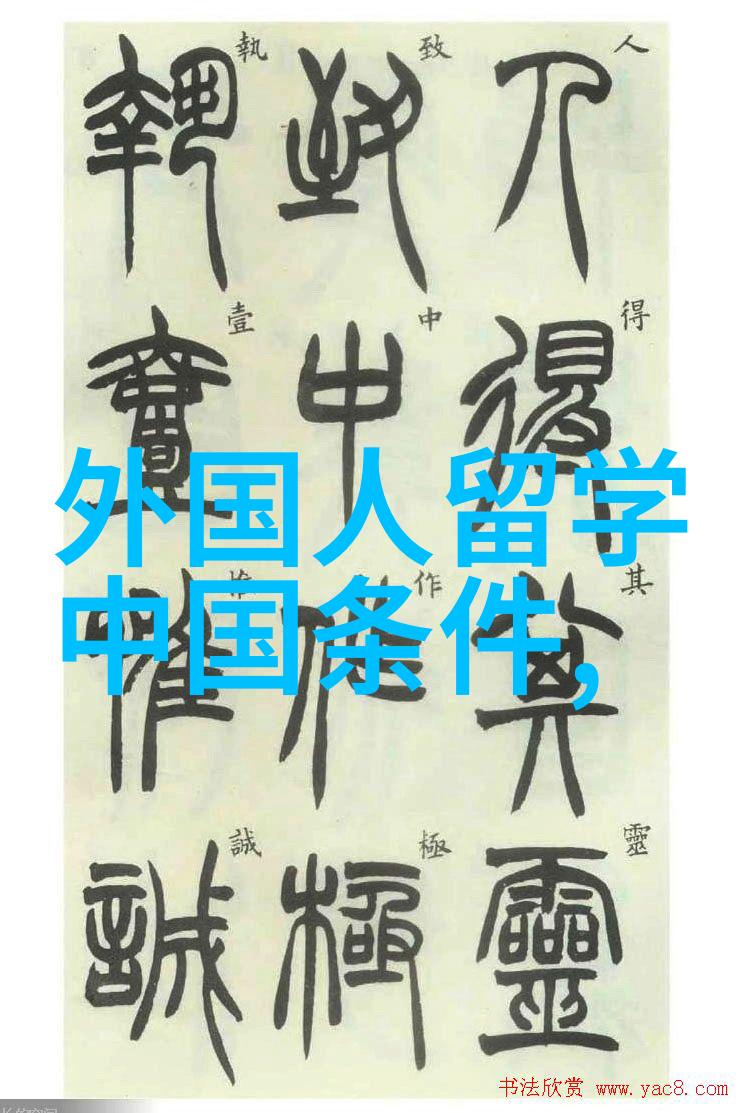 人得其靈
致中作極
執壹惟誠
外国人留学
中国条件,
书法欣赏 www.yac8.com